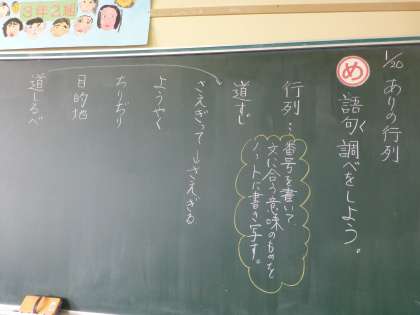 1/20 ありの行列
め 語句調べをしよう。
く
行列…番号を書いて、
文に合う意味のものを
ノートに書き写す。
道すじ
さえぎって→さえぎる
ようやく
ちりぢり
目的地
道しるべ
3年2組